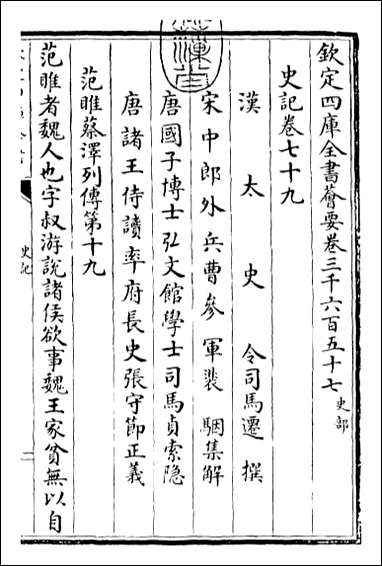 欽定四庫全書薈要卷三千六百五十七 史部
史記卷七十九
漢太史令司馬遷撰
宋中郎外兵曹參軍裴駰集解
唐國子博士弘文館學士司馬貞索隱
唐諸王侍讀率府長史張守節正義
范雎蔡澤列傳第十九
范雎者魏人也字叔游說諸侯欲事魏王家貧無以自
史記